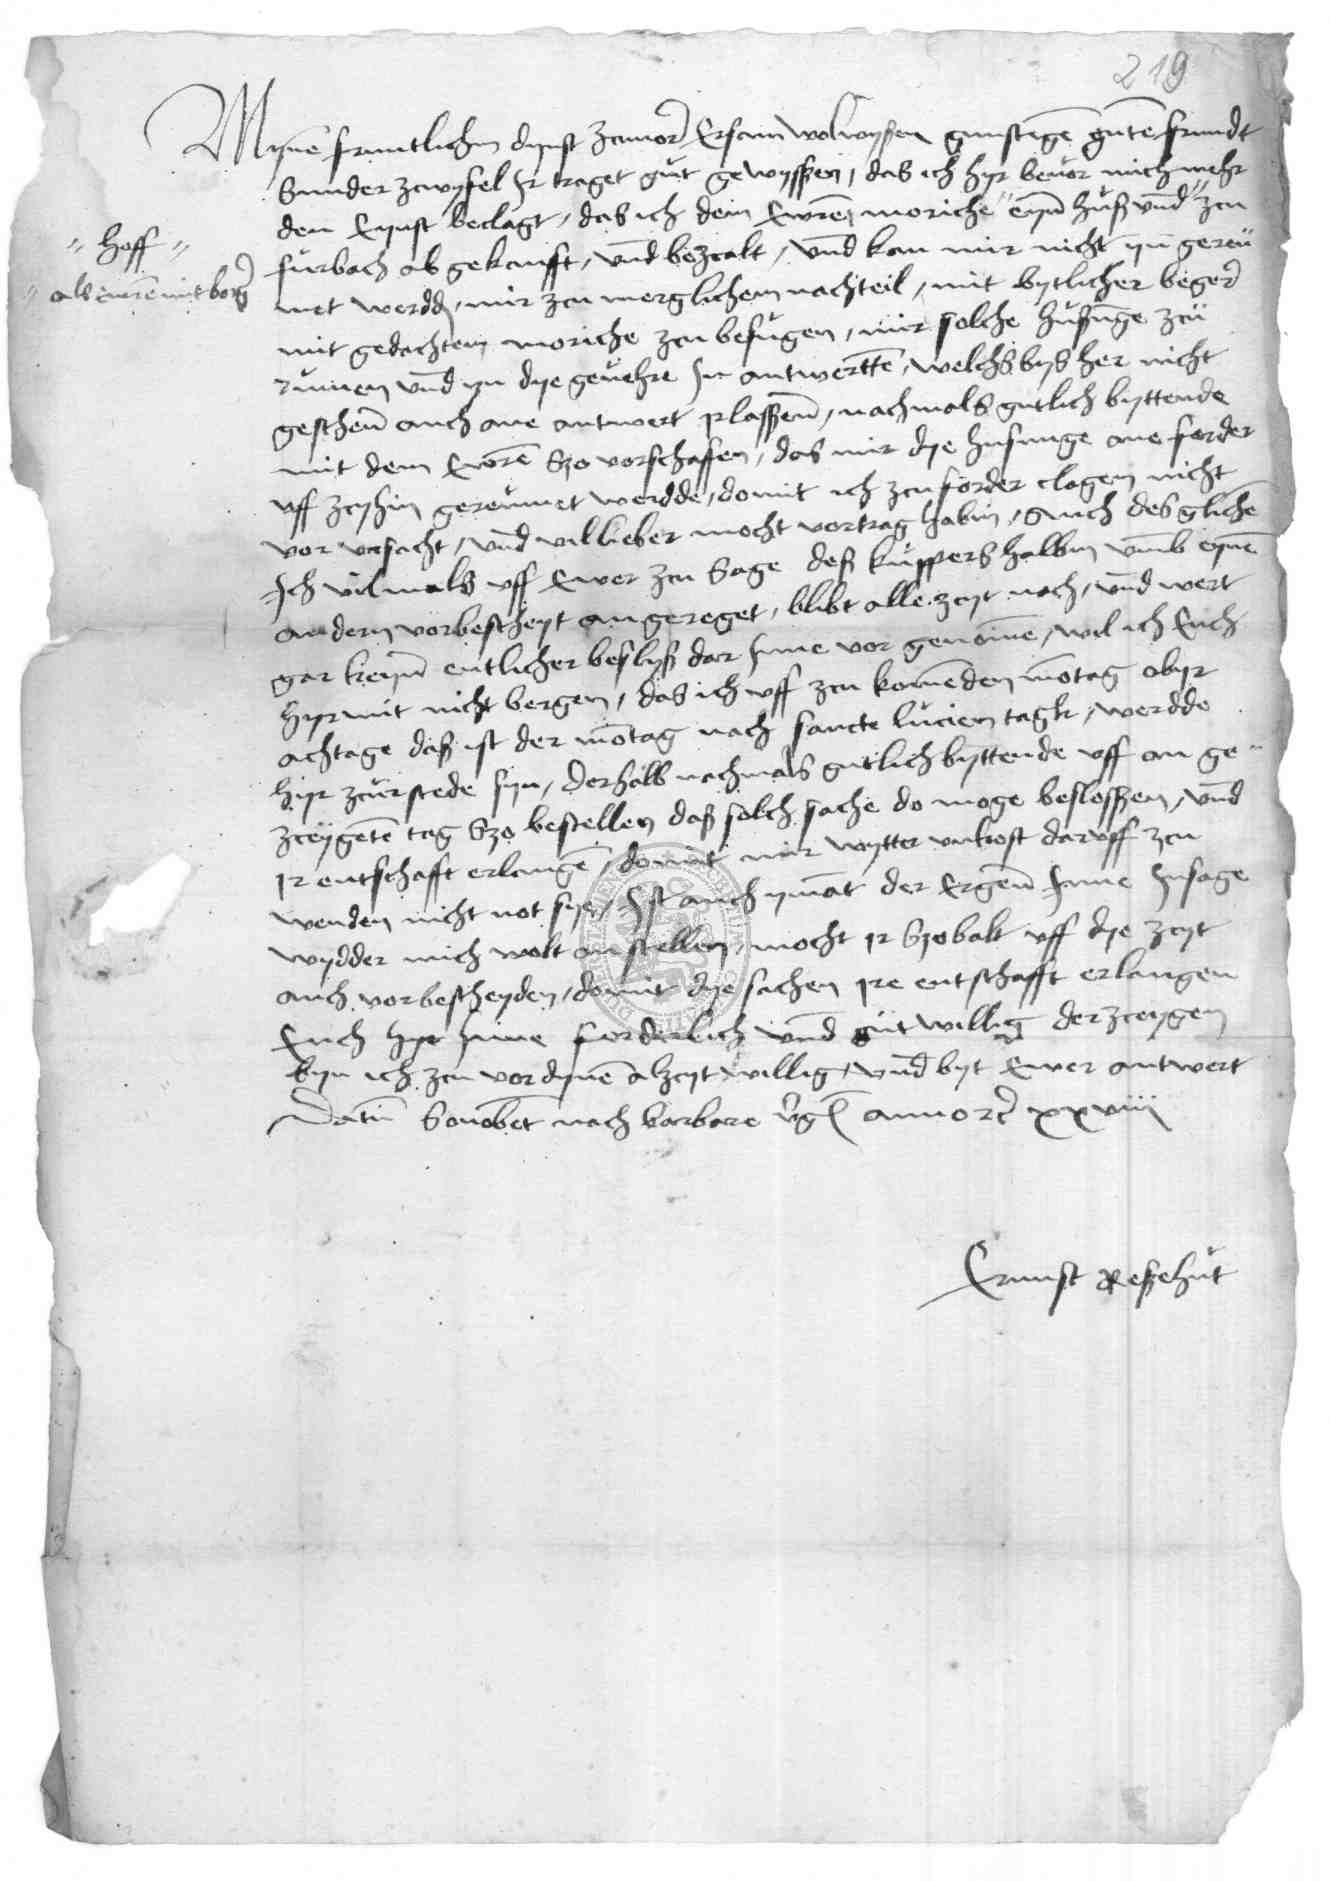 219
Mynē fruntlichen dynst zcuuorṇ Ersam wolwyssen gunstigē gutē frundt
Sunder zcwyfel Ir traget gut gewyssen, das ich hyr beuor mich mehr
den Eynst beclagt, das ich dem Ewrē moriche " eyn huß vnd " zcu
" hoff "
" als ewrē mit borg
furbach ab gekaufft, vnd bezcalt, vnd kan mir nicht yn gereu
met werdd, mir zcu merglichem nachteil, mit bytlicher beger
mit gedachtem moriche zcu befugen, mir solche hußunge zcu
rumen vnd yn dye gewehre In antwerttē, welchs bys her nicht
geschen auch ane antwert plassen, nachmals gutlich byttende
mit dem Ewrē Szo vorschaffen, das mir dye husunge ane forder
vff zcyhin gereumet werdde, domit ich zcu forder clagen nicht
vor vrsacht, vnd vil lieber mocht vortrag habin, Auch desglichē
Ich vilmals vff Ewer zcu Sage deß kuppers halbin vmb eynē
andern vorbescheyt angereget, blibt alle zcyt nach, vnd wert
gar keyn entlicher beslyß dar Inne vor genomē, wil ich Euch
hyrmit nicht bergen, das ich vff zcu komēden mōtag obyr
achtage daß ist der mōtag nach sancte lucien tagk, werdde
hyr zcur stede syn, derhalb nachmals gutlich byttende vff an ge
zceygetē tag Szo bestellen daß solch sache do moge beslossen, vnd
ir entschafft erlangē, domit mir wytter vnkost daruff zcu
wenden nicht not sye, Ist auch ymāt der Ergen Inne Insage
wydder mich wolt anstellen, mocht ir Szobalt vff dye zcyt
auch vorbescheyden, domit dye sachen ire entschafft erlangen
Euch hyr Inne forderlich vnd gutwillig derzceygen
byn ich zcu vordynē alzcyt willig, vnd byt Ewer antwert
Datū Sonobēt nach barbare vgīs anno rc xxviii
Ernnst Reßehut